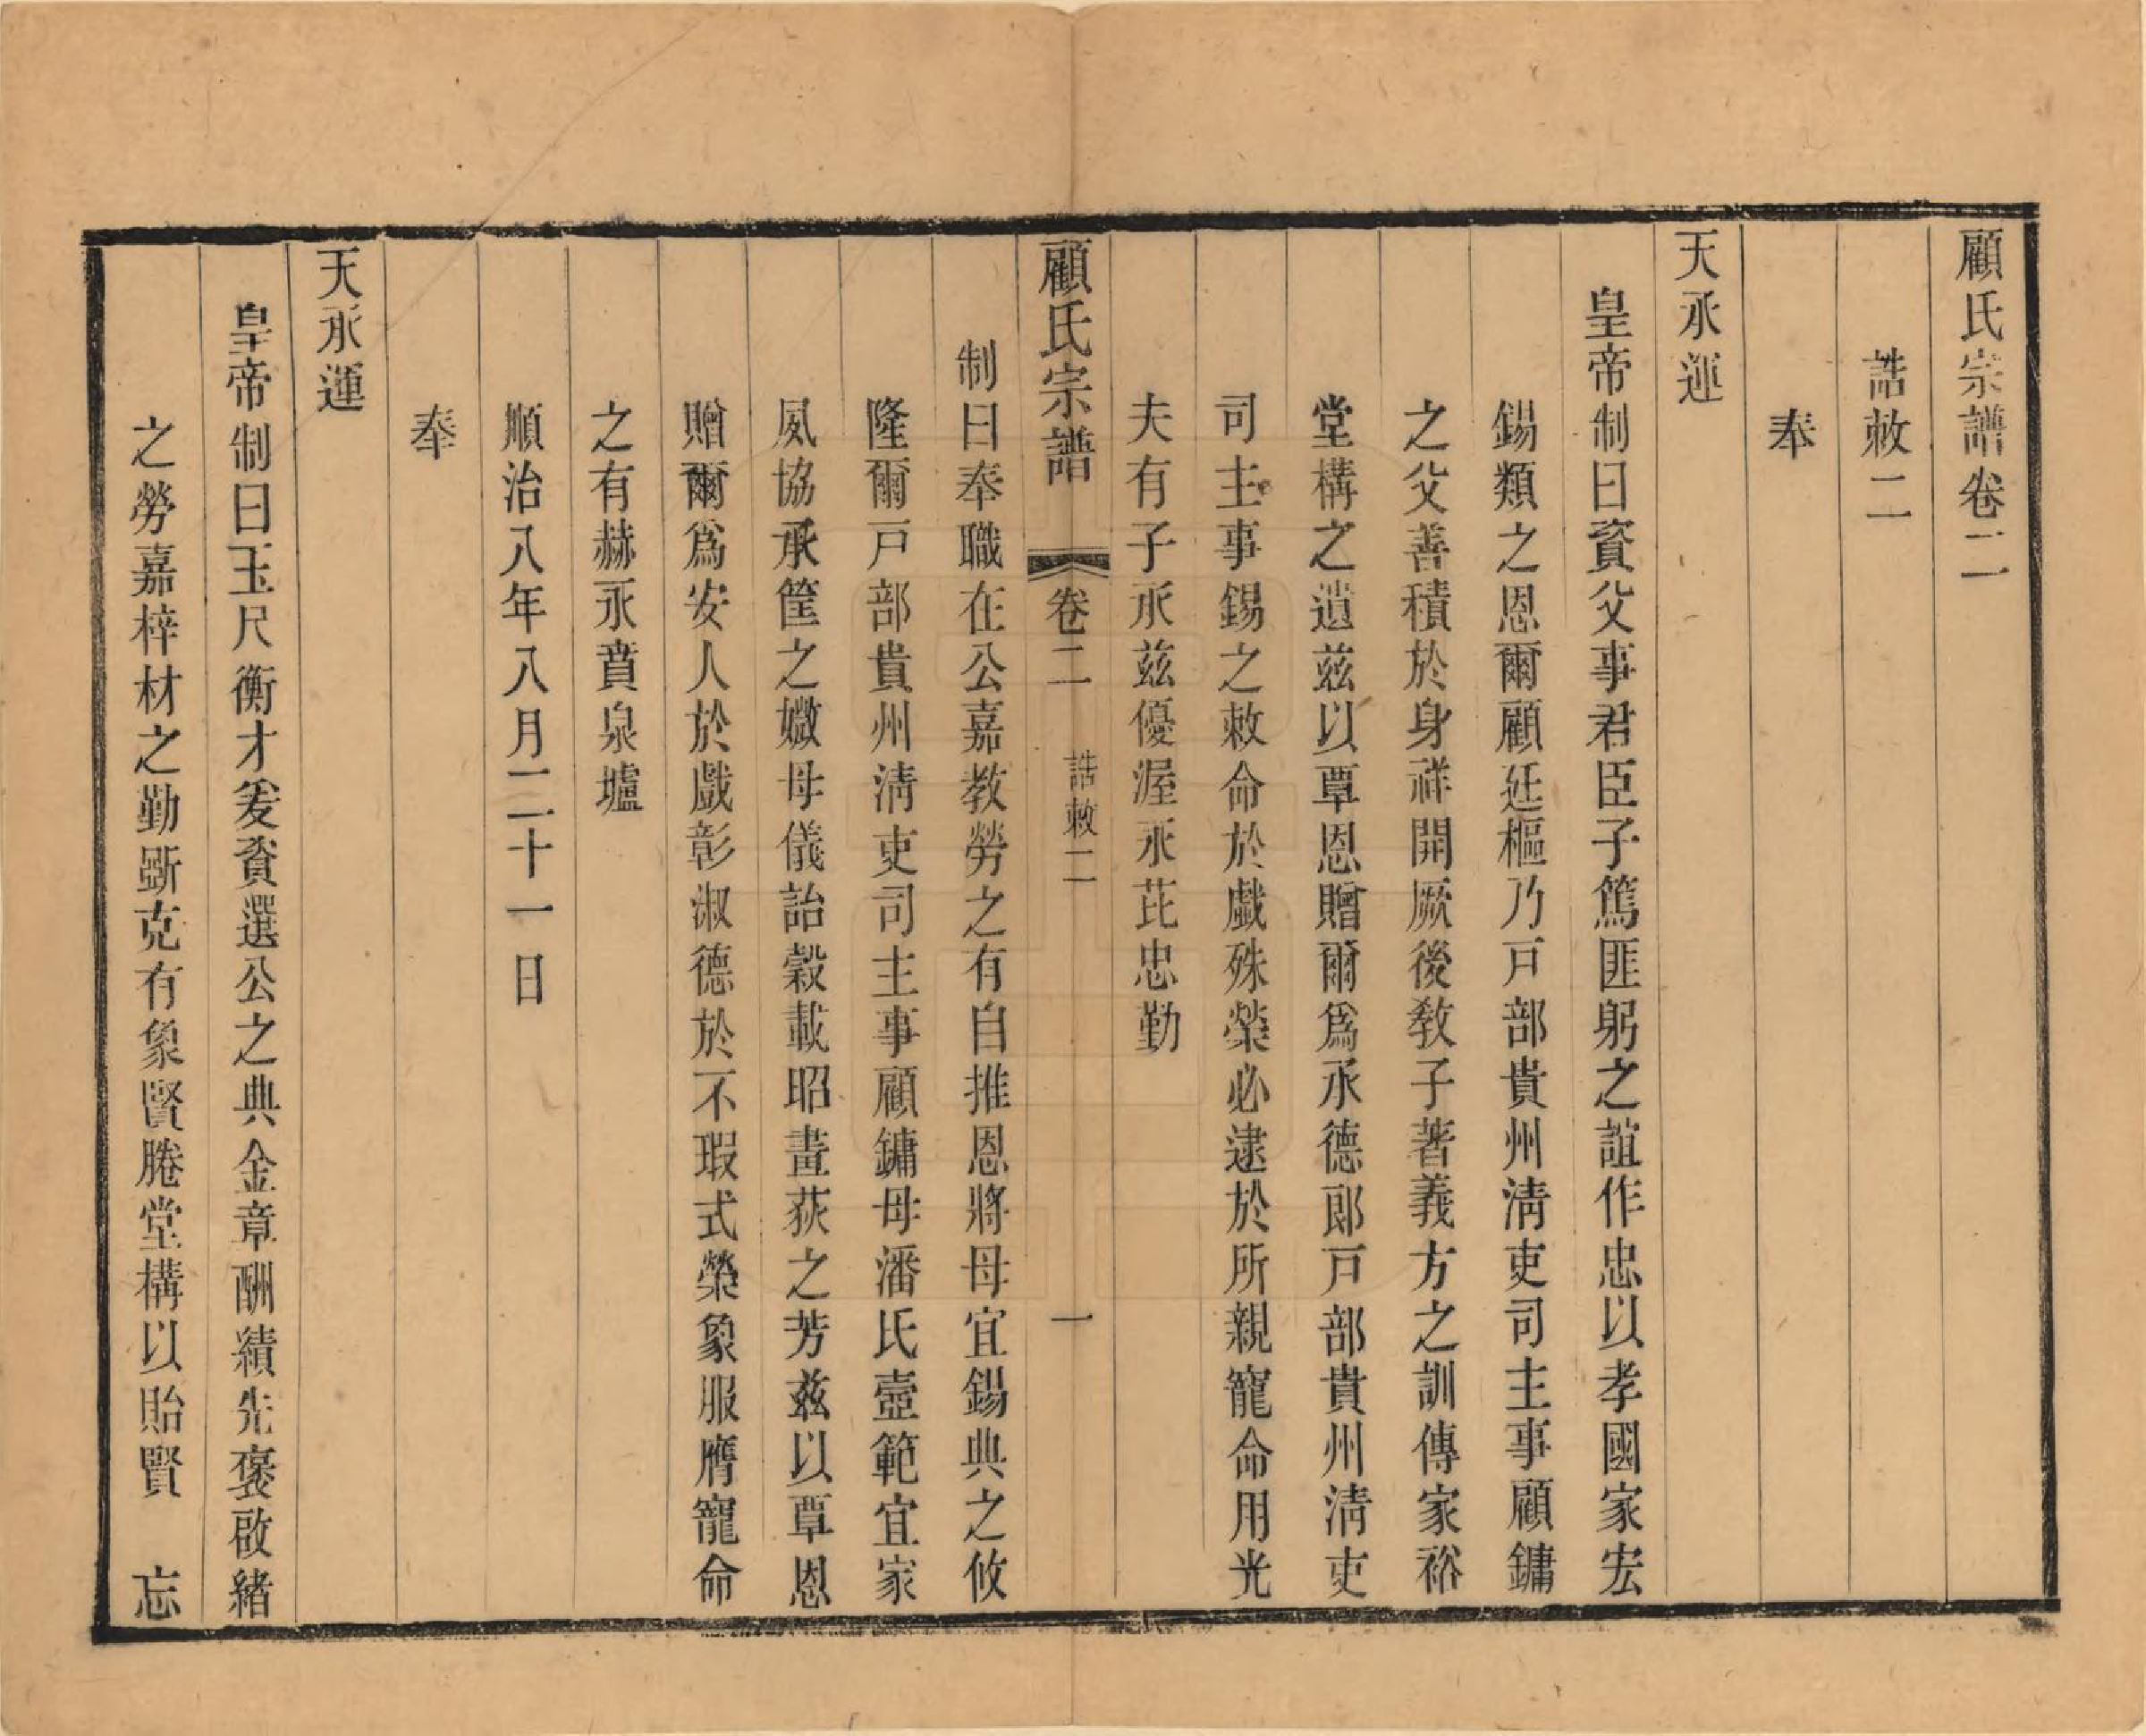 顧氏宗譜卷二
誥敕二
奉
天承運
皇帝制曰資父事君臣子篤匪躬之誼作忠以孝國家宏
錫類之恩爾顧廷樞乃戸部貴州清吏司主事顧鏞
之父善積於身祥開厥後敎子著義方之訓傳家裕
堂構之遺茲以覃恩贈爾爲承德郎戸部貴州清吏
司主事錫之敕命於戲殊榮必逮於所親寵命用光
夫有子承茲優渥永芘忠勤
顧氏宗譜 卷二 誥敕二 一
制曰奉職在公嘉教勞之有自推恩將母宜錫典之攸
隆爾戸部貴州清吏司主事顧鏞母潘氏壼範宜家
夙協承筐之媺母儀詒穀載昭畫荻之芳茲以覃恩
贈爾爲安人於戲彰淑德於不瑕式榮象服膺寵命
之有赫永賁泉壚
順治八年八月二十一日
奉
天承運
皇帝制曰玉尺衡才爰資選公之典金章酬績先褒啟緒
之勞嘉梓材之勤斲克有象賢勝堂構以貽賢 忘